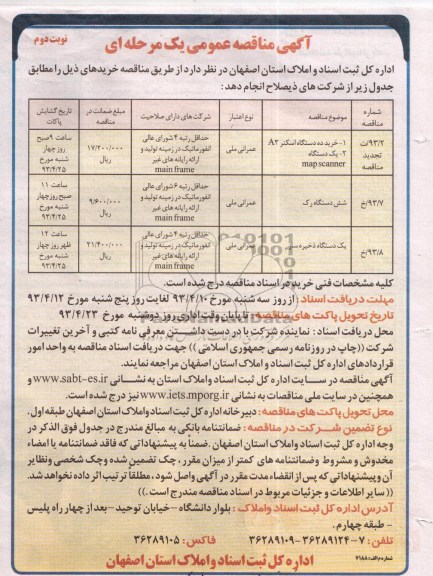 نوبت دوم
آگهی مناقصه عمومی یک مرحله ای
اداره کل ثبت اسناد و املاک استان اصفهان در نظر دارد از طریق مناقصه خریدهای ذیل را مطابق
جدول زیر از شرکت های ذیصلاح انجام دهد:
شماره مناقصه | موضوع مناقصه | نوع اعتبار | شرکت های دارای صلاحیت | مبلغ ضمانت در مناقصه | تاریخ گشایش پاکات
۹۳/۲/ت تجدید مناقصه | ۱- خرید ده دستگاه اسکنر A۳ ۲- یک دستگاه map scanner | عمرانی ملی | حداقل رتبه ۴ شورای عالی انفورماتیک در زمینه تولید و ارائه رایانه های غیر main frame | ۱۷/۲۰۰/۰۰۰ ریال | ساعت ۹ صبح روز چهار شنبه مورخ ۹۳/۴/۲۵
۹۳/۷/خ | شش دستگاه رک | عمرانی ملی | حداقل رتبه ۶ شورای عالی انفورماتیک در زمینه تولید و ارائه رایانه های غیر main frame | ۹/۶۰۰/۰۰۰ ریال | ساعت ۱۱ صبح روز چهار شنبه مورخ ۹۳/۴/۲۵
۹۳/۸/خ | یک دستگاه ذخیره ساز | عمرانی ملی | حداقل رتبه ۴ شورای عالی انفورماتیک در زمینه تولید و ارائه رایانه های غیر main frame | ۲۱/۴۰۰/۰۰۰ ریال | ساعت ۱۲ ظهر روز چهار شنبه مورخ ۹۳/۴/۲۵
کلیه مشخصات فنی خرید در اسناد مناقصه درج شده است.
مهلت دریافت اسناد : از روز سه شنبه مورخ ۹۳/۴/۱۰ لغایت روز پنج شنبه مورخ ۹۳/۴/۱۲
تاریخ تحویل پاکت های مناقصه: تا پایان وقت اداری روز دوشنبه مورخ ۹۳/۴/۲۳
محل دریافت اسناد : نماینده شرکت با در دست داشتن معرفی نامه کتبی و آخرین تغییرات
شرکت ((چاپ در روزنامه رسمی جمهوری اسلامی )) جهت دریافت اسناد مناقصه به واحد امور
قراردادهای اداره کل ثبت اسناد و املاک استان اصفهان مراجعه نمایند.
آگهی مناقصه در سایت اداره کل ثبت اسناد و املاک استان به نشانی www.sabt-es.ir و
همچنین در سایت ملی مناقصات به نشانی www.iets.mporg.ir نیز درج شده است.
محل تحویل پاکت های مناقصه : دبیرخانه اداره کل ثبت اسناد و املاک استان اصفهان طبقه اول.
نوع تضمین شرکت در مناقصه : ضمانتنامه بانکی به مبالغ مندرج در جدول فوق الذکر در
وجه اداره کل ثبت اسناد و املاک استان اصفهان. ضمناً به پیشنهاداتی که فاقد ضمانتنامه یا امضاء
مخدوش و مشروط وضمانتنامه های کمتر از میزان مقرر ، چک تضمین شده و چک شخصی ونظایر
آن و پیشنهاداتی که پس از انقضاء مدت مقرر در آگهی واصل شود ، مطلقاً ترتیب اثر داده نخواهد شد.
(( سایر اطلاعات و جزئیات مربوط در اسناد مناقصه مندرج است.))
آدرس اداره کل ثبت اسناد و املاک : بلوار دانشگاه - خیابان توحید - بعد از چهار راه پلیس
- طبقه چهارم.
تلفن : ۷-۳۶۲۸۹۱۲۴-۳۶۲۸۹۱۰۹ فاکس : ۳۶۲۸۹۱۰۵
اداره کل ثبت اسناد و املاک استان اصفهان